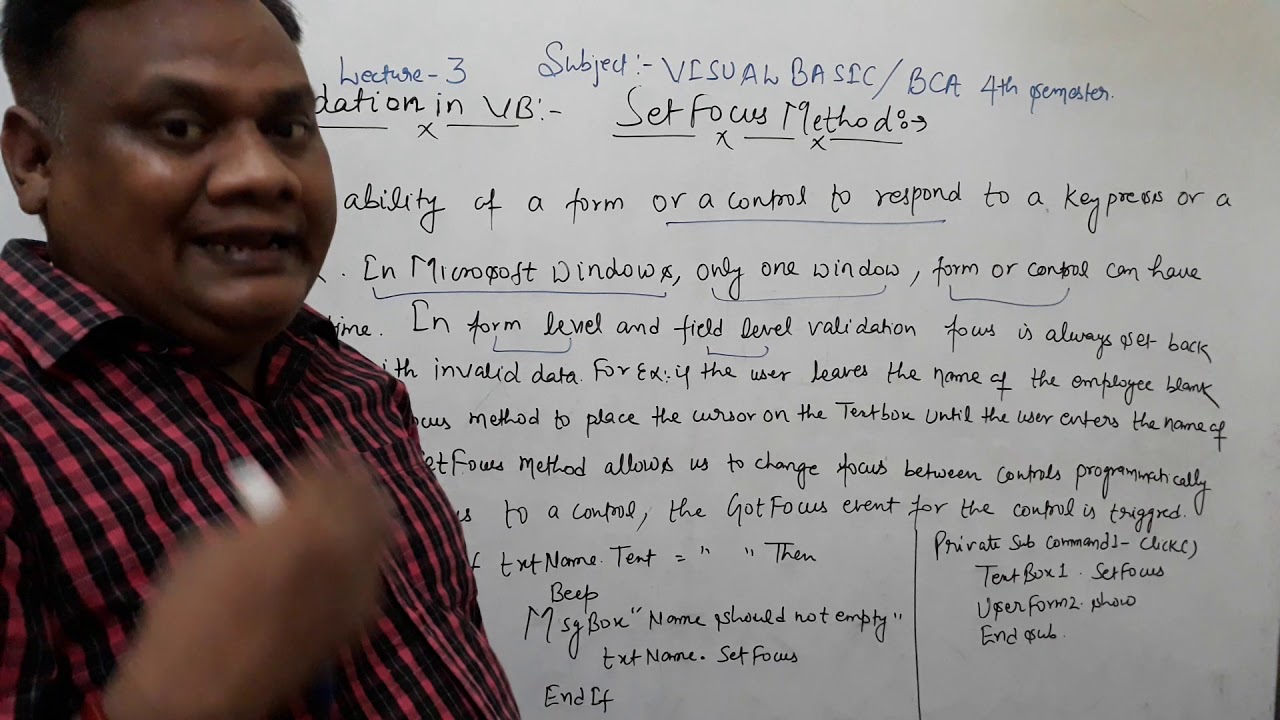 Lecture-3 Subject:- VISUAL BASIC/BCA 4th semester.
dation in VB:- SetFocus Method:→
ability of a form or a control to respond to a keypress or a
. In Microsoft Windows, only one window, form or control can have
time. In form level and field level validation focus is always set back
ith invalid data. For Ex: if the user leaves the name of the employee blank
ocus method to place the cursor on the Textbox until the user enters the name of
SetFocus method allows us to change focus between controls programmatically
us to a control, the GotFocus event for the control is triggred.
f txtName.Text = " " Then
Beep
MsgBox "Name should not empty"
txtName.SetFocus
End If
Private Sub Command1_Click()
TextBox1.SetFocus
UserForm2.show
End sub.